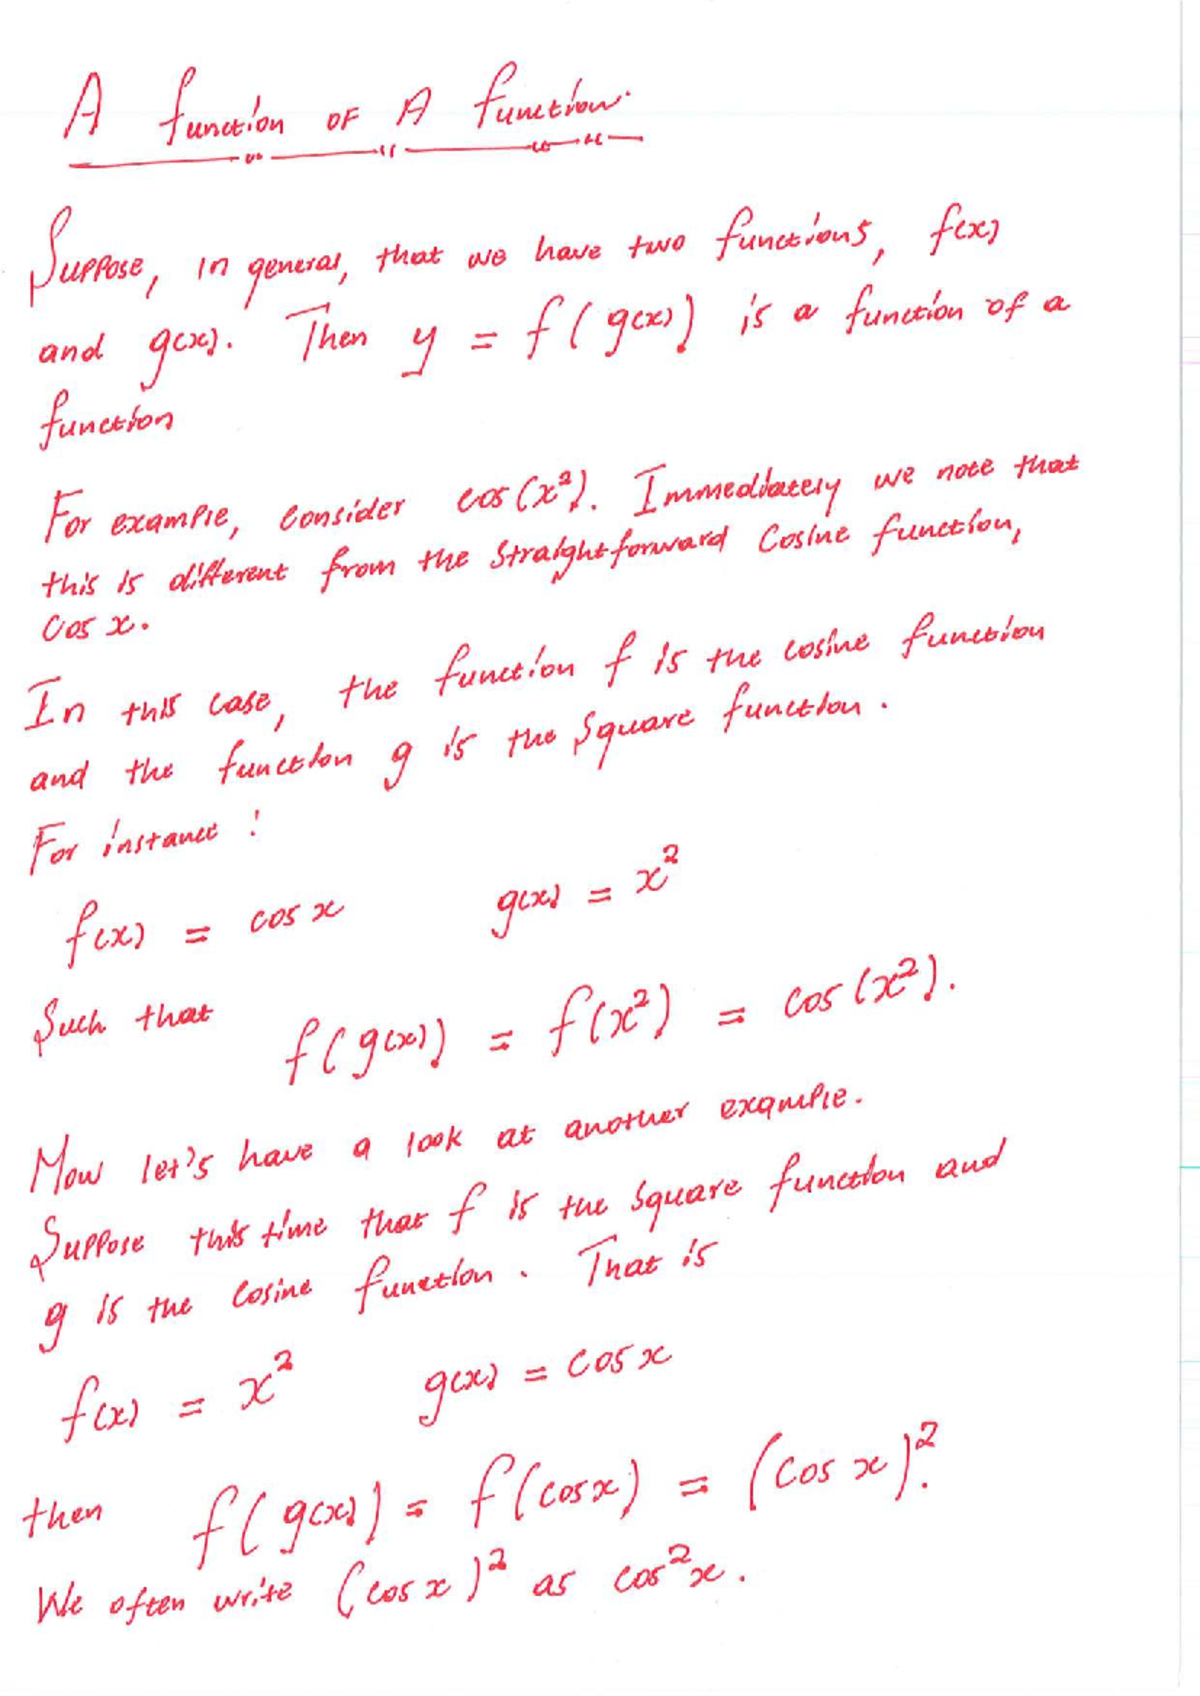 A function OF A function.
Suppose, in general, that we have two functions, f(x)
and g(x). Then y = f(g(x)) is a function of a
function
For example, consider cos(x²). Immediately we note that
this is different from the straightforward Cosine function,
Cos x.
In this case, the function f is the cosine function
and the function g is the Square function.
For instance :
f(x) = cos x g(x) = x²
Such that f(g(x)) = f(x²) = cos(x²).
Now let's have a look at another example.
Suppose this time that f is the square function and
g is the Cosine function. That is
f(x) = x² g(x) = cos x
then f(g(x)) = f(cos x) = (cos x)².
We often write (cos x)² as cos²x.